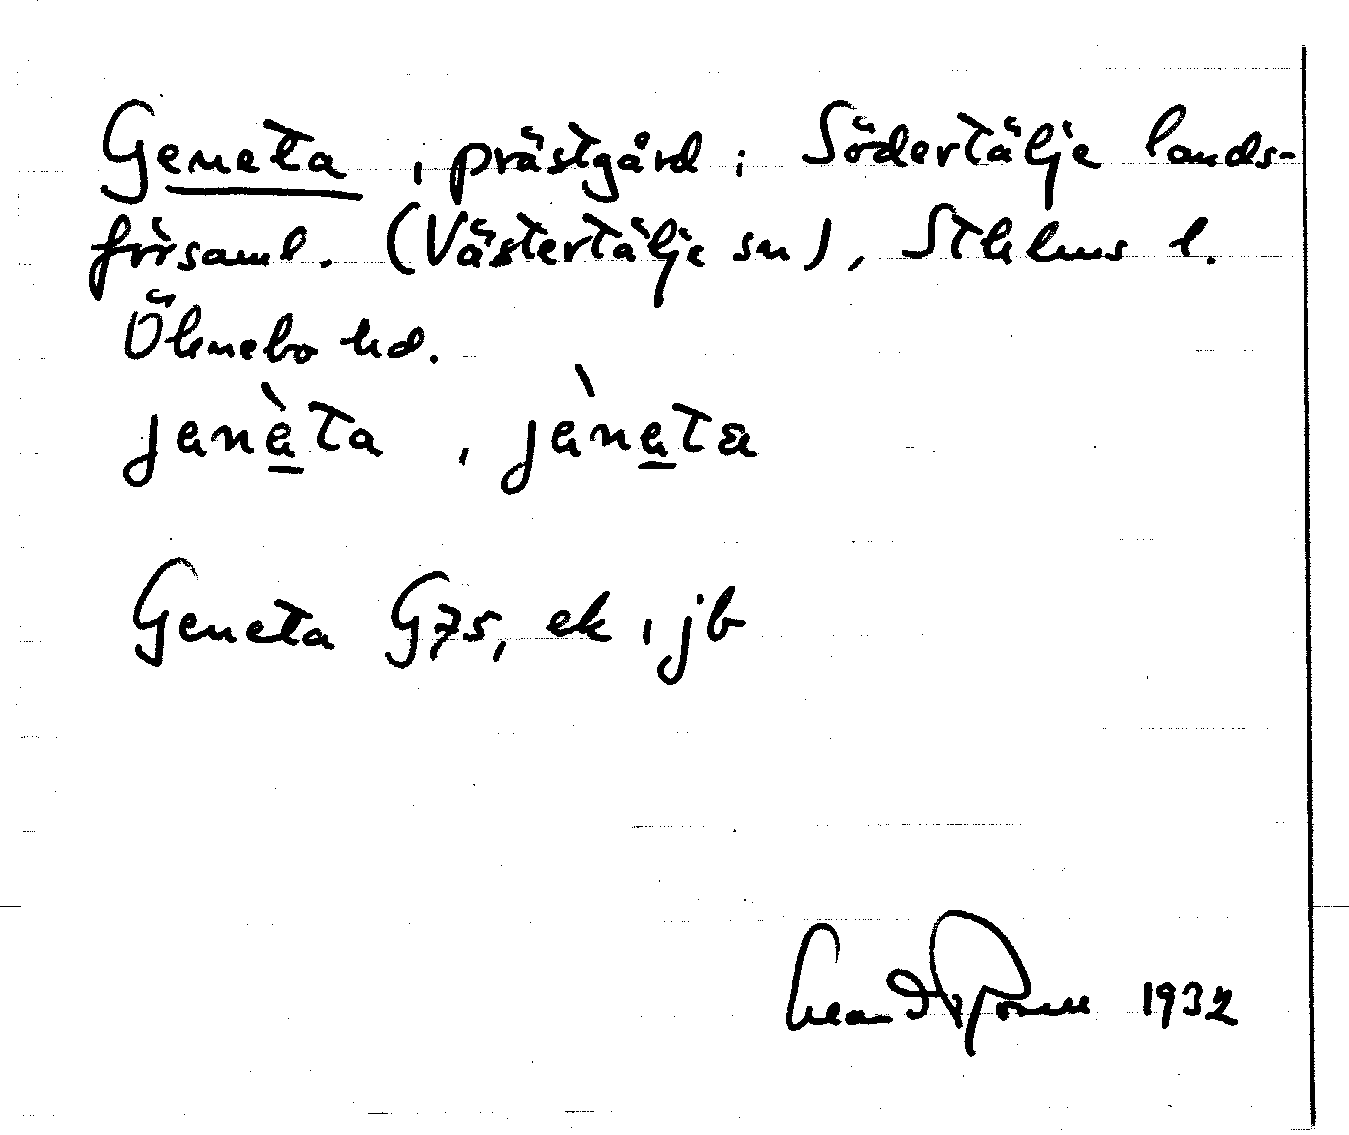 Geneta, prästgård; Södertälje lands-
församl. (Västertälje sn), Sthlms l.
Öknebo hd.
jenèta, jèneta
Geneta G75, ek, jb
1932